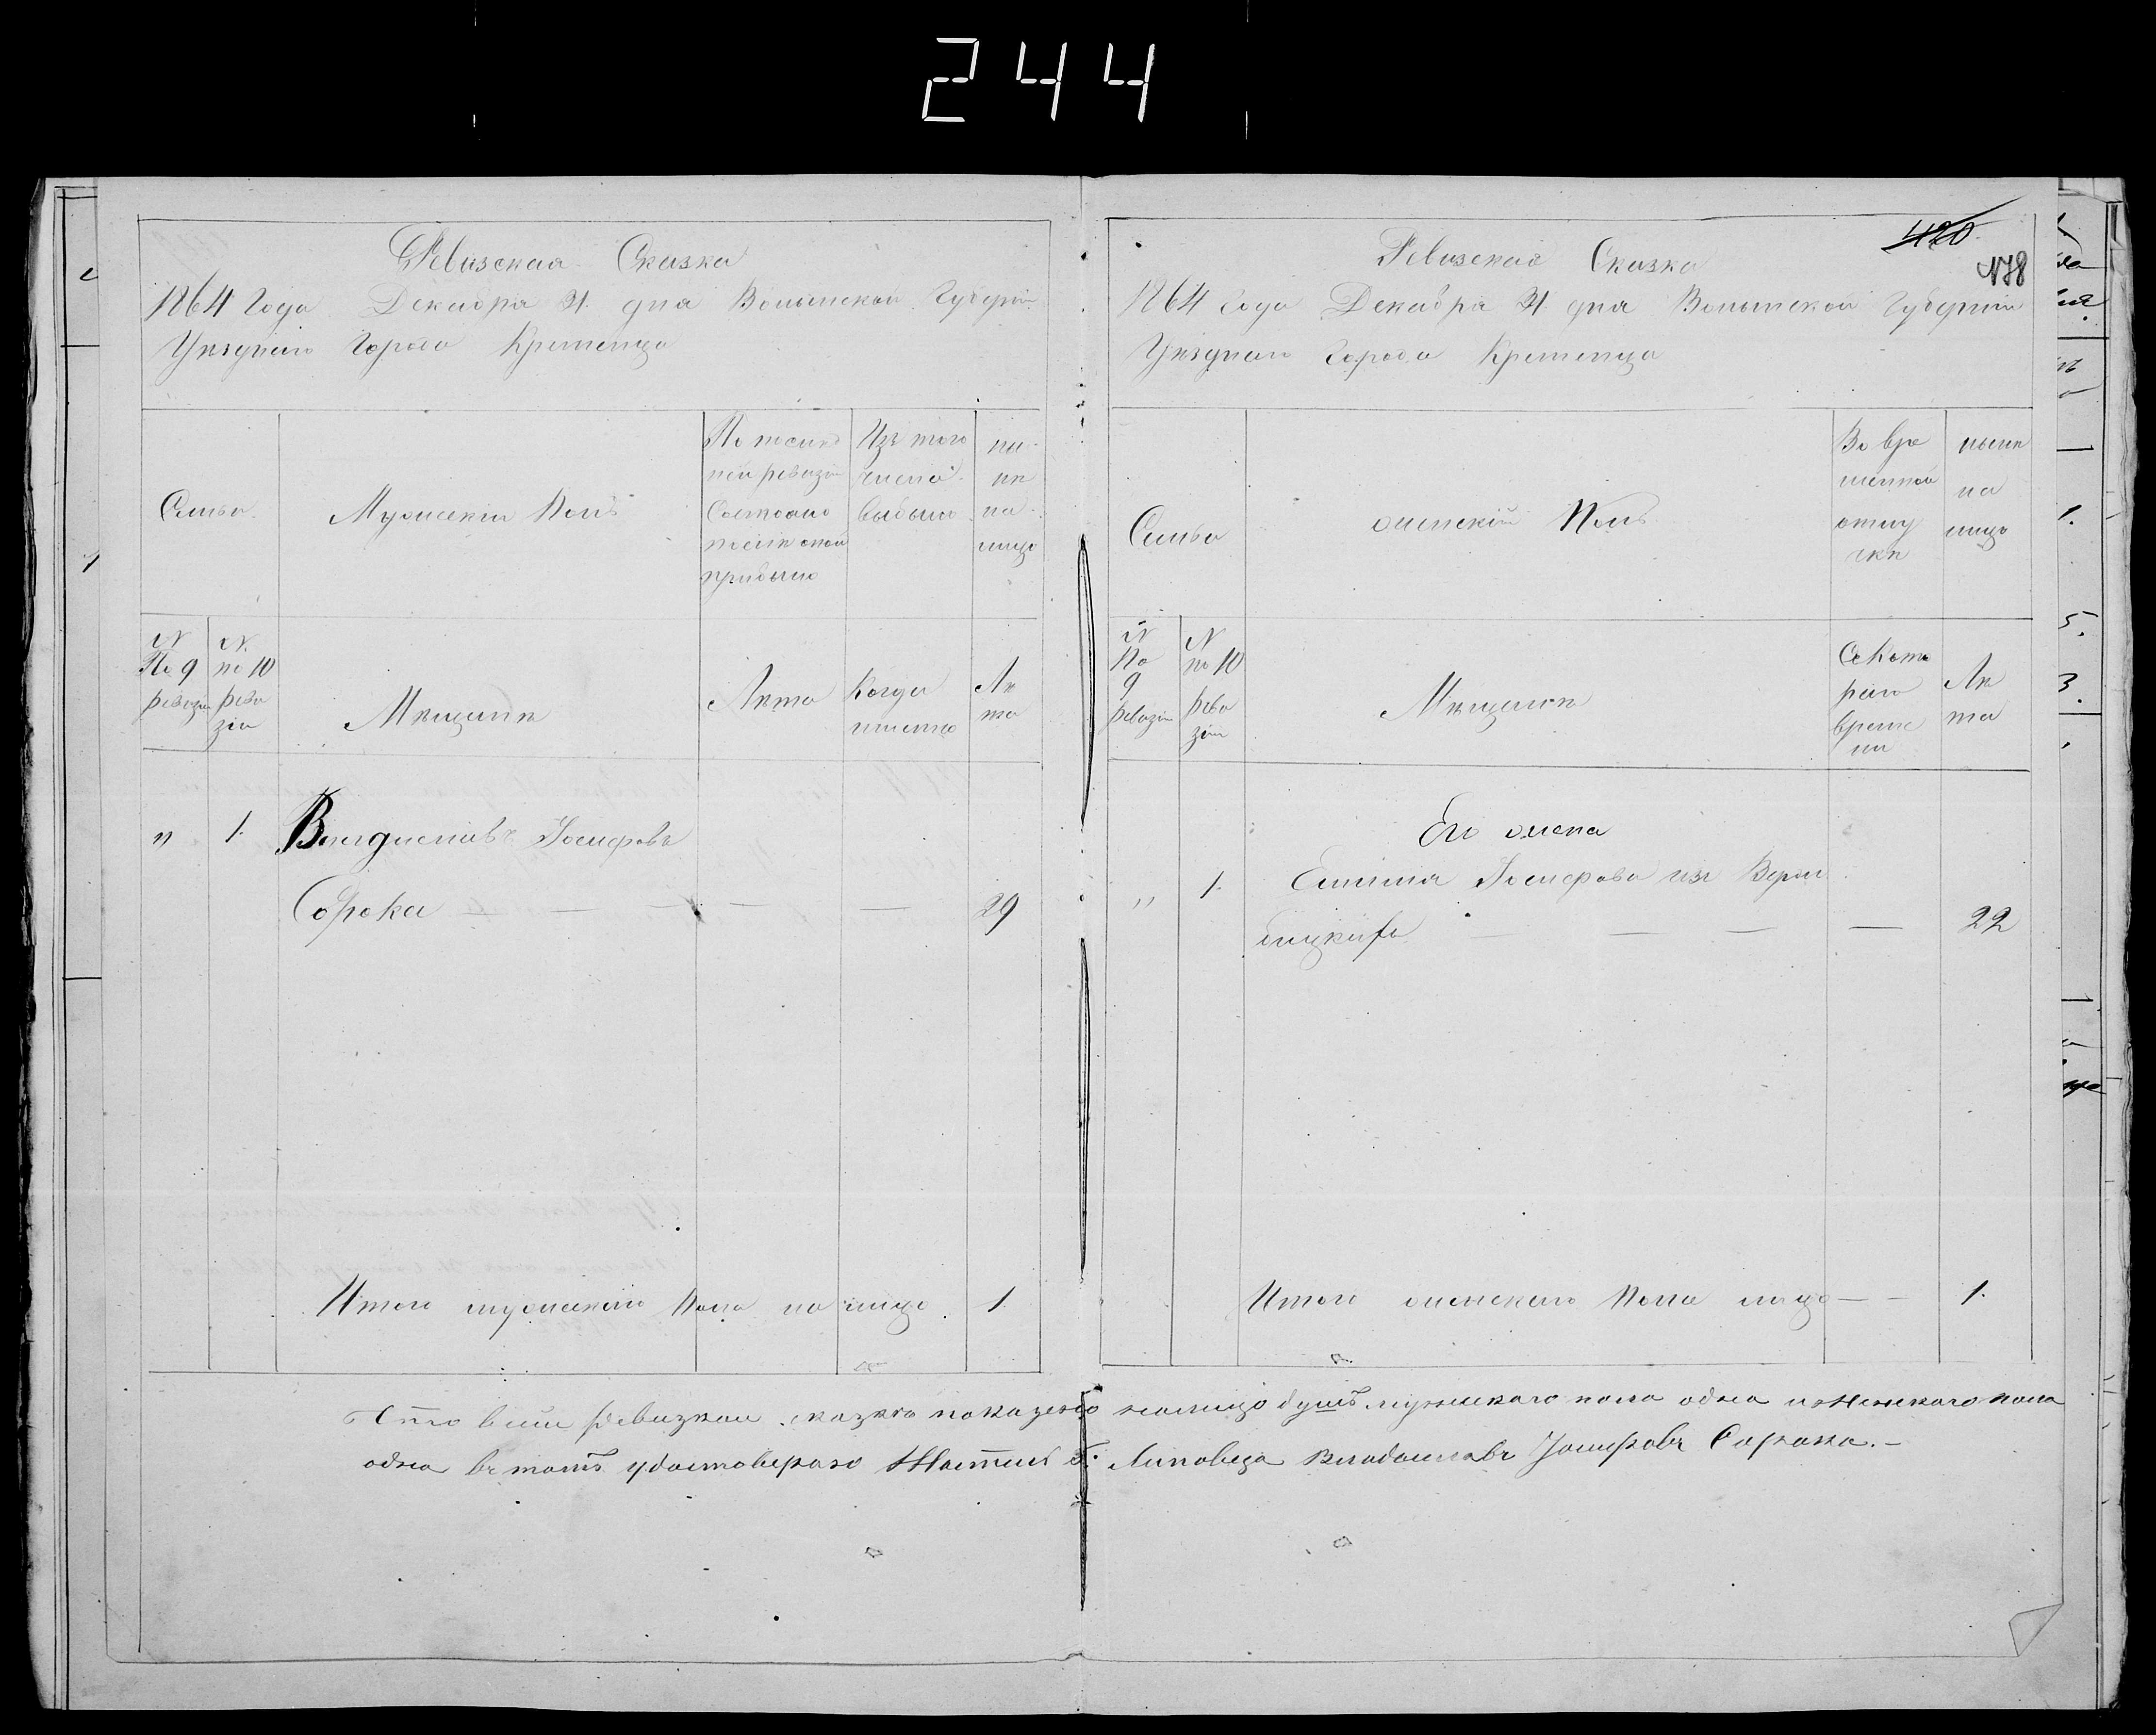 244
Ревизская Сказка
1864 Года Декабря 31. дня Волынской Губерніи
Уѣзднаго Города Кременца
Семьи
Мужескій Полъ
По послѣд
ней ревизіи
Состояло
послѣ оной
прибыло
Изъ того
числа
выбыло
ны-
нѣ
на
лицо
N
По 9
ревизіи
N.
по 10
реви
зіи
Мѣщане
Лѣта
Когда
именно
Лѣ
та
„ 1. Владиславъ Іосифовъ
Сорока — — — — — 29
Итого мужескаго Пола на лицо 1.
420
178
Ревизская Сказка
1864 Года Декабря 31. дня Волынской Губерніи
Уѣзднаго Города Кременца
Семьи
женскій Полъ
Во вре
менной
отлу
чкѣ
нынѣ
на
лицо
N
По
9
ревизіи
N
по 10
реви
зіи
Мѣщане
Съ Кото
раго
време
ни
Лѣ
та
Его жена
„ 1. Іосифова изъ
— — — — 22
Итого женскаго Пола лицо — — 1.
Что въ сей ревизкои сказкѣ показано налицо душъ мужскаго пола одна и женскаго пола
одна въ томъ удостоверяю Житель г. Липовеца Владиславъ Іосифовъ Сорока.-